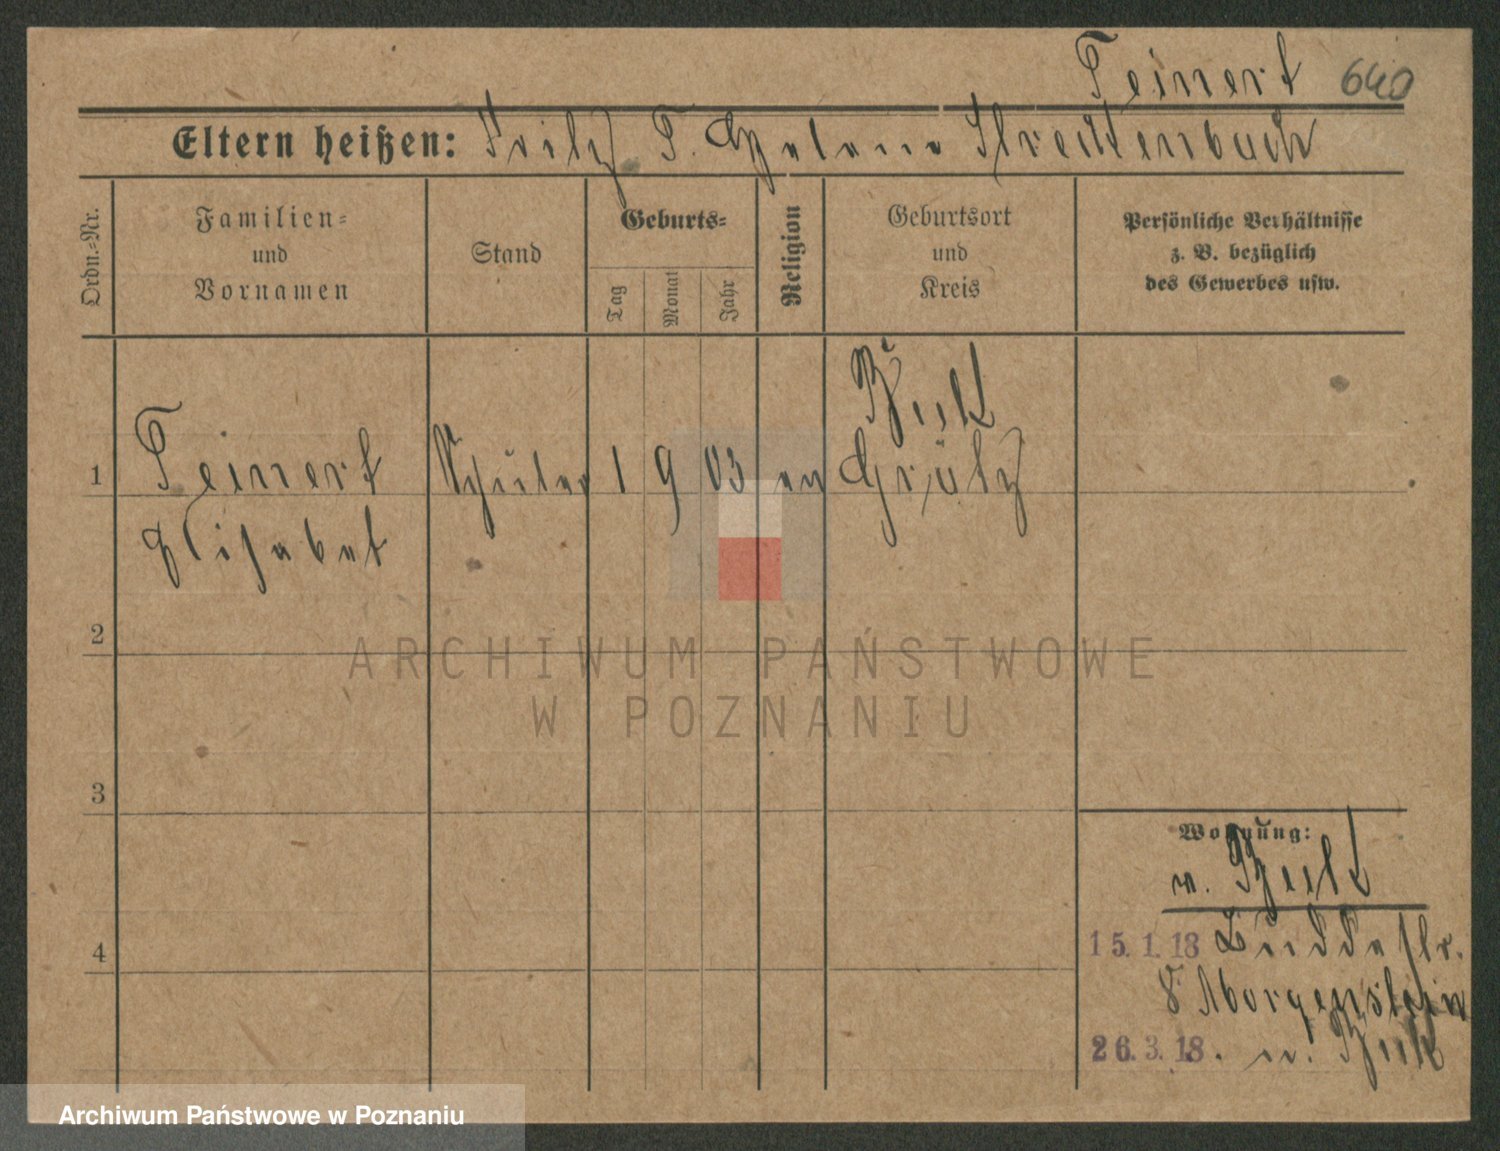 Teinert 640
Eltern heißen: Fritz T. Helene Strectenbach
Ordn.-Nr.
Familien-
und
Vornamen
Stand
Geburts-
Tag
Monat
Jahr
Religion
Geburtsort
und
Kreis
Persönliche Verhältnisse
z. B. bezüglich
des Gewerbes usw.
Buk
1 Teinert Schüler 1 9 03 ev Grätz
Elisabet
2
ARCHIWUM PAŃSTWOWE
W POZNANIU
3
Wohnung:
v. Buk
4
15.1.18 Buddestr.
8 Morgenstern
26.3.18. n. Buk
Archiwum Państwowe w Poznaniu